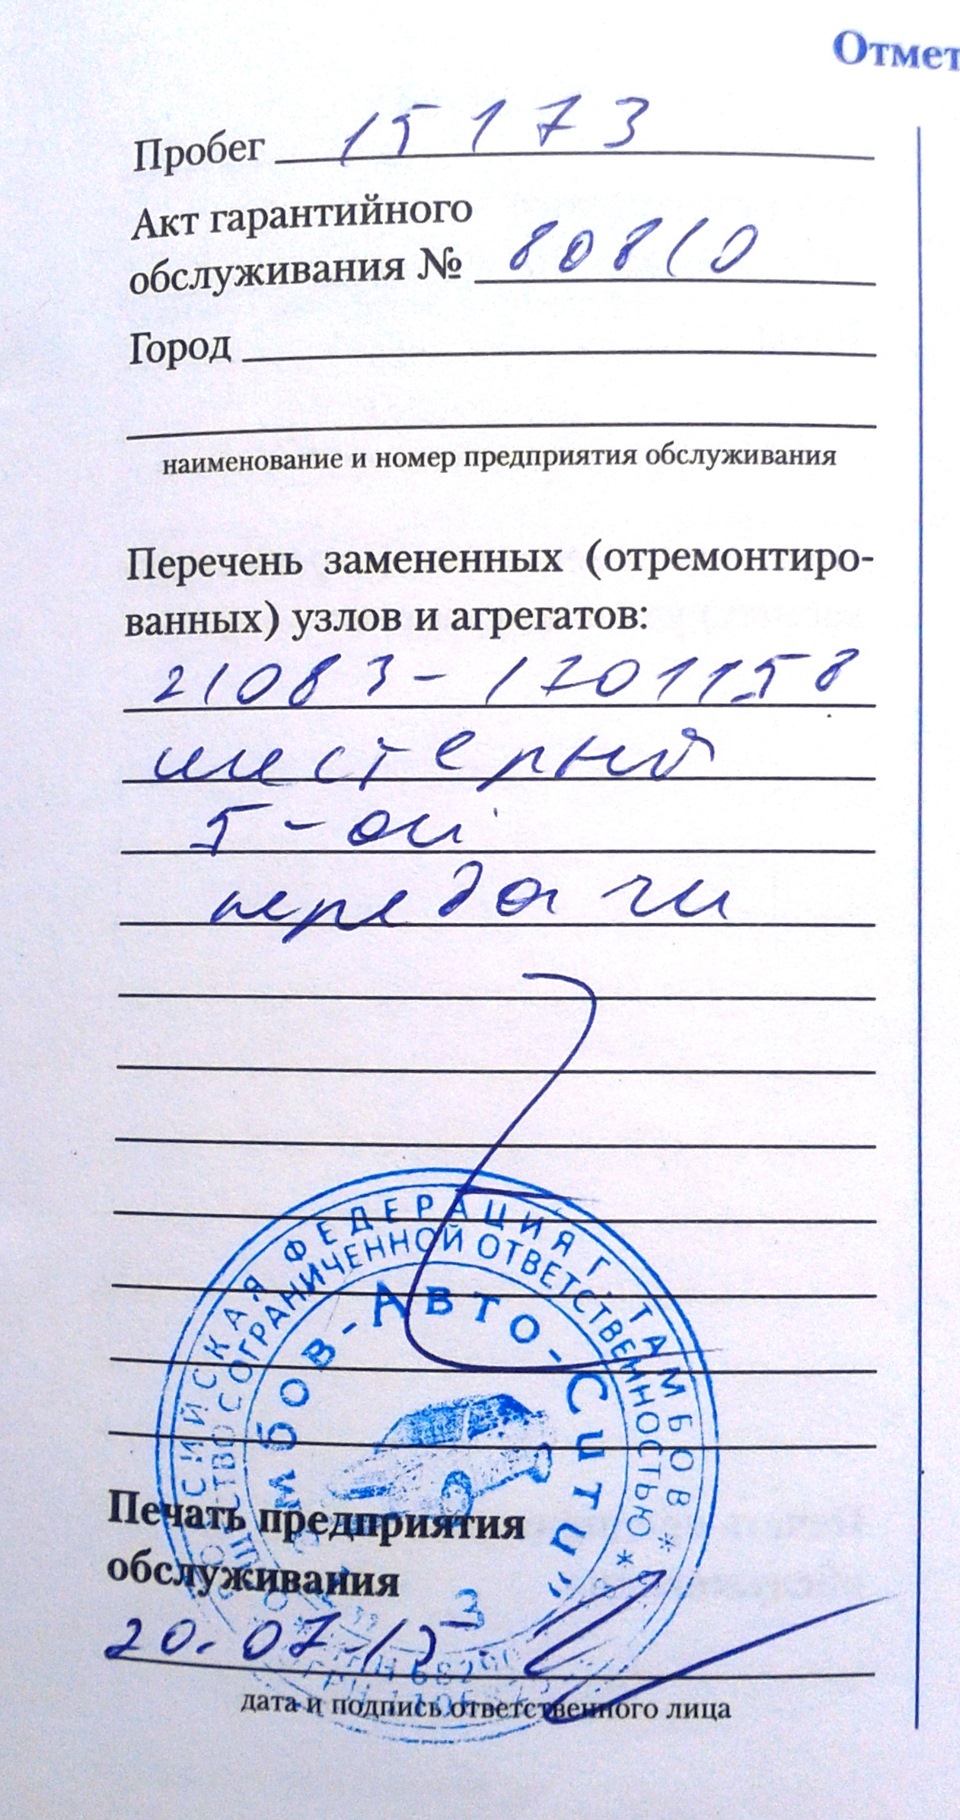 Отмет
Пробег 15173
Акт гарантийного
обслуживания № 80810
Город
наименование и номер предприятия обслуживания
Перечень замененных (отремонтиро-
ванных) узлов и агрегатов:
21083-1701158
шестерня
5-ой
передачи
РОССИЙСКАЯ ФЕДЕРАЦИЯ Г. ТАМБОВ *
ОБЩЕСТВО С ОГРАНИЧЕННОЙ ОТВЕТСТВЕННОСТЬЮ *
Тамбов-Авто-Сити"
3
Печать предприятия
обслуживания
20.07.13
дата и подпись ответственного лица